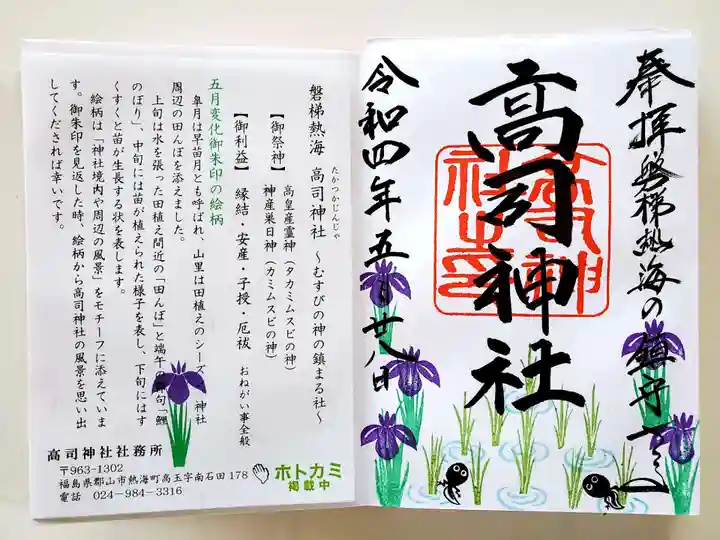 奉拝 磐梯熱海の鎮守
高司神社
令和四年五月廿八日
磐梯熱海 高司神社 ～むすびの神の鎮まる社～
たかつかじんじゃ
【御祭神】 高皇産霊神（タカミムスビの神）
神産巣日神（カミムスビの神）
【御利益】 縁結・安産・子授・厄祓 おねがい事全般
五月変化御朱印の絵柄
皐月は早苗月とも呼ばれ、山里は田植えのシーズ 神社
周辺の田んぼを添えました。
上旬は水を張った田植え間近の「田んぼ」と端午の 句「鯉
のぼり」、中旬には苗が植えられた様子を表し、下旬にはす
くすくと苗が生長する状を表します。
絵柄は「神社境内や周辺の風景」をモチーフに添えていま
す。御朱印を見返した時、絵柄から高司神社の風景を思い出
してくだされば幸いです。
高司神社社務所
〒963-1302
福島県郡山市熱海町高玉字南石田 178
電話 024-984-3316
ホトカミ
掲載中